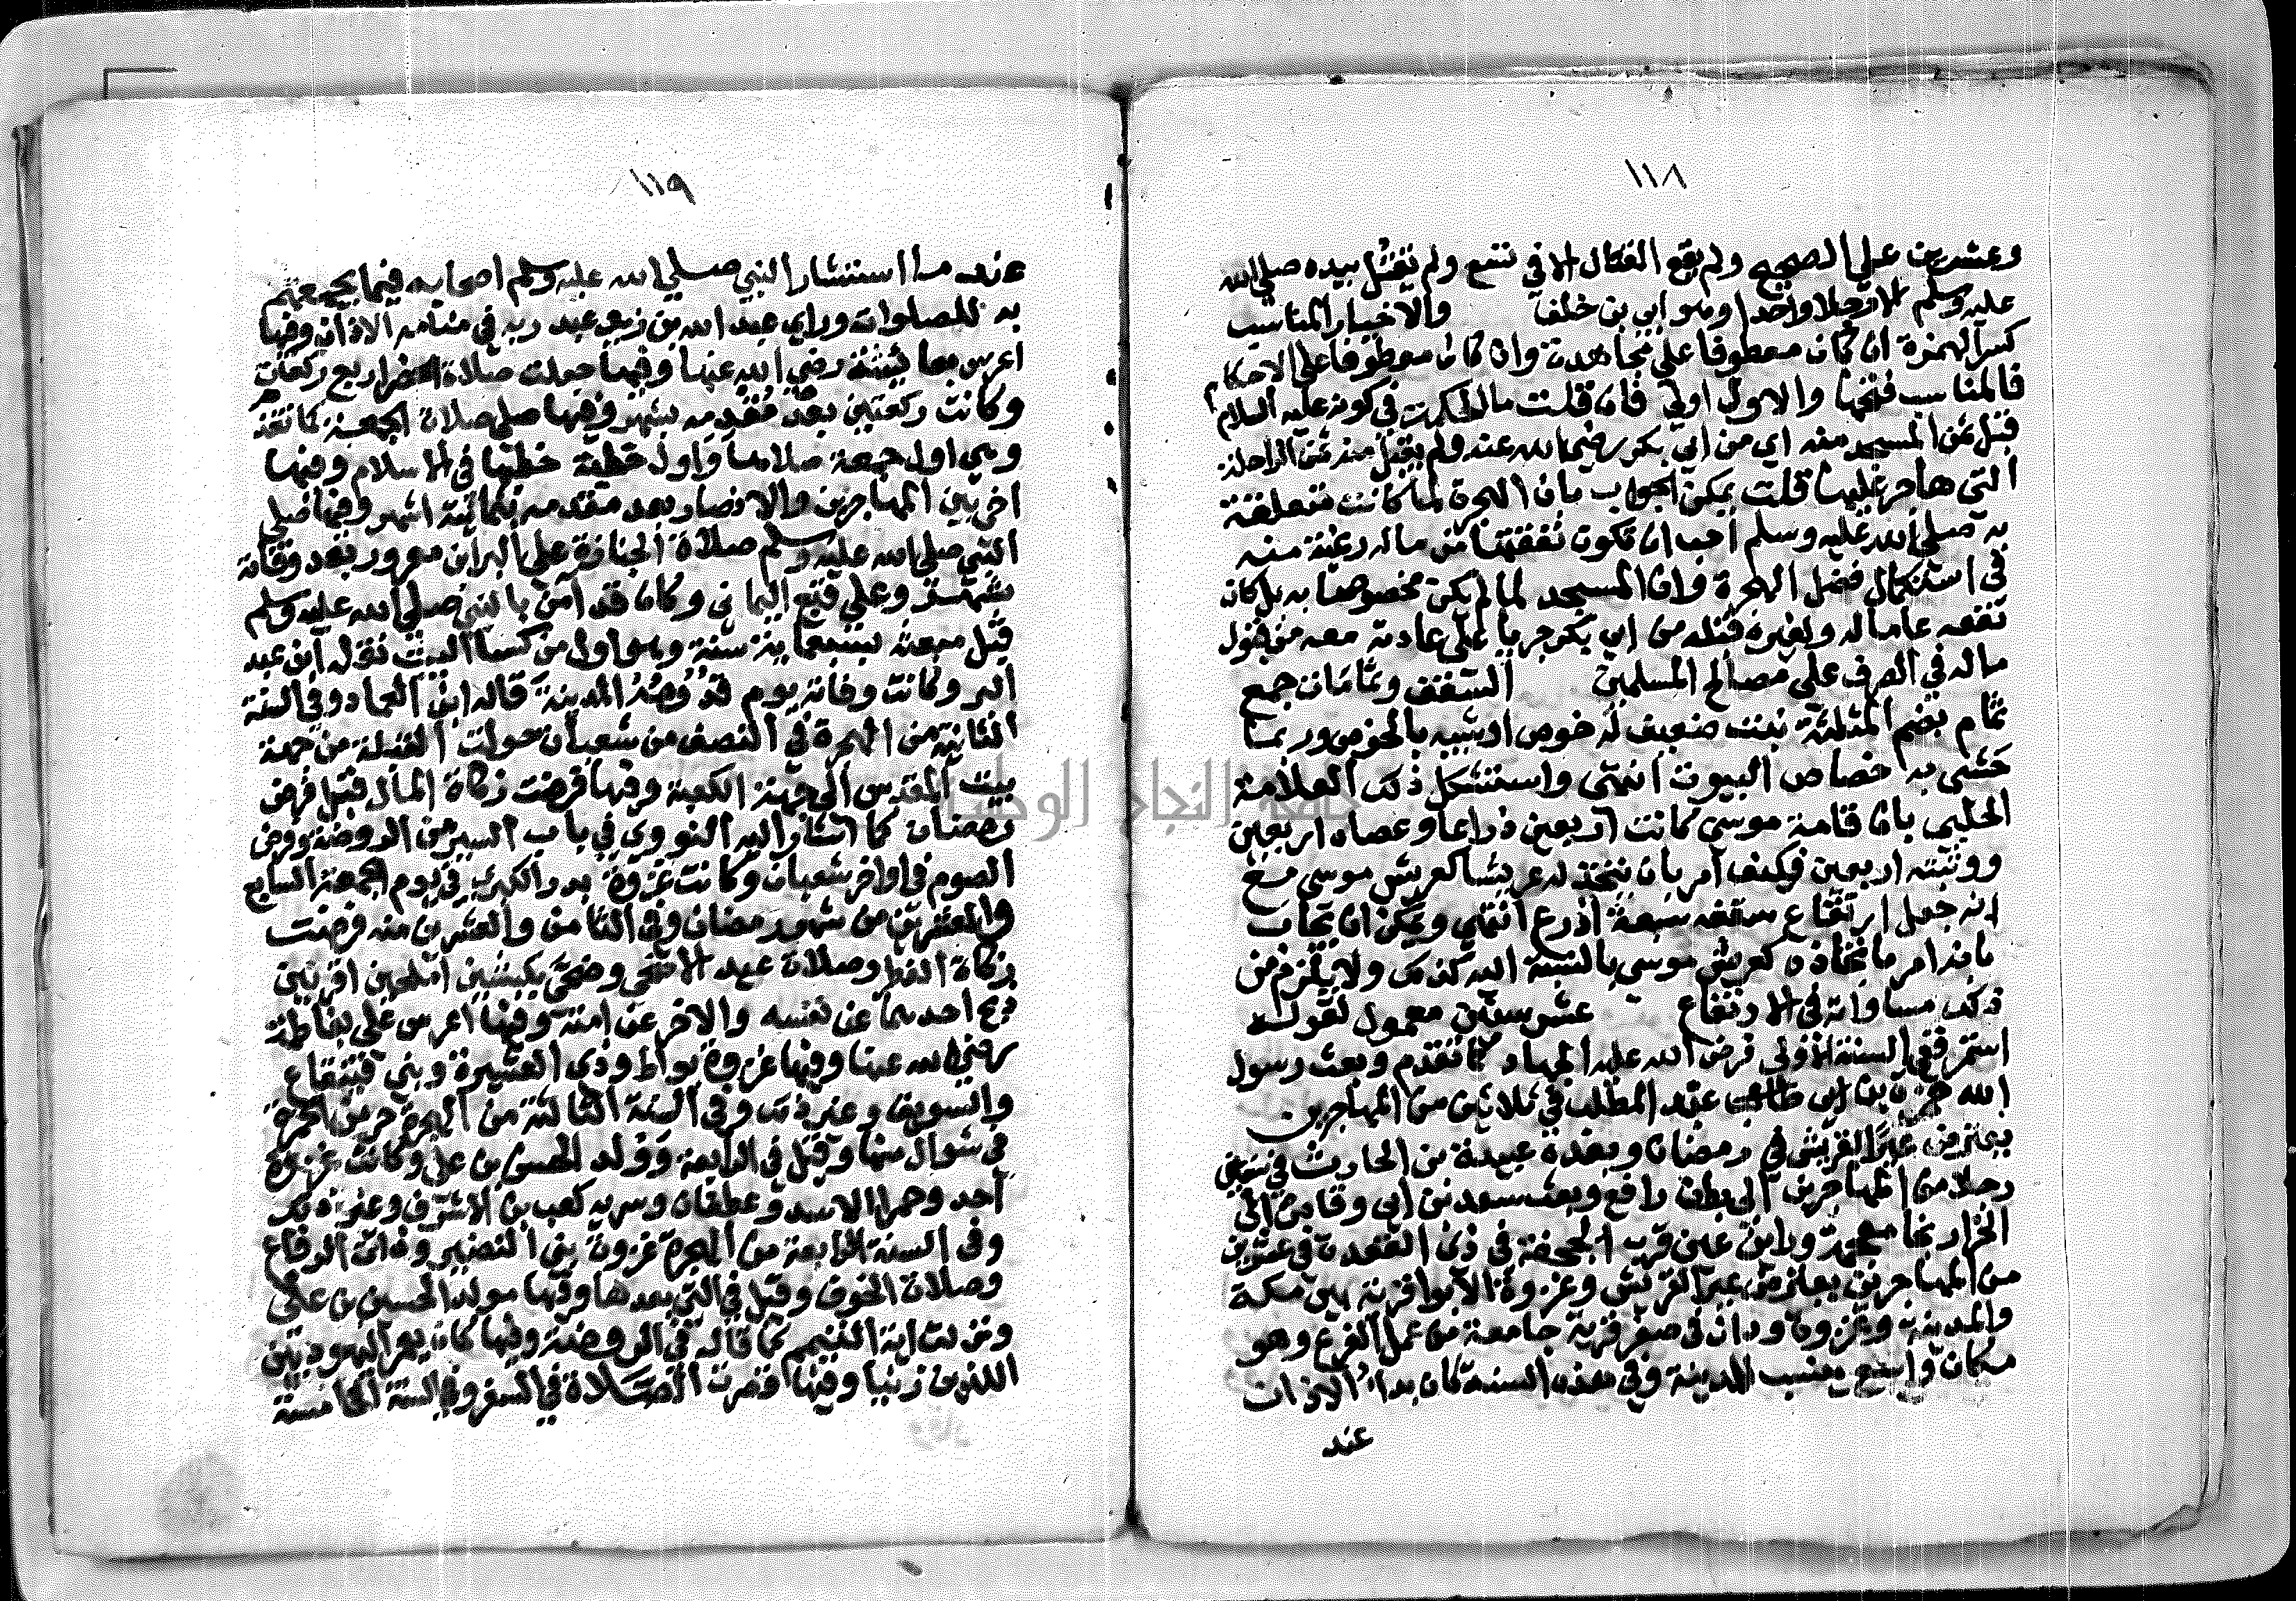 ١١٨
وعشرين على الصحيح ولم يقع القتال الا في تسع ولم يقتل بيده صلى الله
عليه وسلم الا رجلا واحدا وهو ابي بن خلف والاخبار المناسب
كسر الهمزة ان كان معطوفا على مجاهدة وان كان معطوفا على الاحكام
فالمناسب فتحها والاول اولى فان قلت ما الحكمة في كونه عليه السلام
قبل ثمن المسجد منه اي من ابي بكر رضي الله عنه ولم يقبل منه ثمن الراحلة
التي هاجر عليها قلت يمكن الجواب بان الهجرة لما كانت متعلقة
به صلى الله عليه وسلم احب ان تكون نفقتها من ماله رغبة منه
في استكمال فضل الهجرة وان المسجد لما لم يكن مخصوصا به بل كان
نفعه عاما له ولغيره قبله من ابي بكر جريا على عادته معه من قبول
ماله في الصرف على مصالح المسلمين السقف وثمامات جمع
ثمام بضم المثلثة نبت ضعيف له خوص او شبيه بالخوص وربما
حشى به خصاص البيوت انتهى واستشكل ذلك العلامة
الحلبي بان قامة موسى كانت اربعين ذراعا وعصاه اربعين
ووثبته اربعين فكيف امر بان يتخذ له عريشا كعريش موسى مع
انه جعل ارتفاع سقفه سبعة اذرع انتهى ويمكن ان يجاب
بانه امر باتخاذه كعريش موسى بالنسبة اليه كذلك ولا يلزم من
ذلك مساواته في الارتفاع عشر سنين معمول لقوله
استمر ففي السنة الاولى فرض الله عليه الجهاد كما تقدم وبعث رسول
الله حمزة بن ابي طالب عبد المطلب في ثلاثين من المهاجرين
يعترض عير القريش في رمضان وبعده عبيدة بن الحارث في ستين
رجلا من المهاجرين الى بطن رافع وبعث سعد بن ابي وقاص الى
الخرار وابن عين قرب الجحفة في ذي القعدة في عشرين
من المهاجرين يعترض عير القريش وغزوة الابوا قرية بين مكة
والمدينة وغزوة ودان في صفر قرية جامعة من عمل الفرع وهو
مكان واسع بجنب المدينة وفي هذه السنة كان بداء الاذان
عند
١١٩
عند ما استشار النبي صلى الله عليه وسلم اصحابه فيما يجمعهم
به للصلوات وراي عبد الله بن زيد عبد ربه في منامه الاذان وفيها
اعرس بعايشة رضي الله عنها وفيها جعلت صلاة الحضر اربع ركعات
وكانت ركعتين بعد مقدمه بشهر وفيها صلى صلاة الجمعة كما تقدم
وهي اول جمعة صلاها واول خطبة خطبها في الاسلام وفيها
اخي بين المهاجرين والانصار بعد مقدمه بثمانية اشهر وفيها صلى
النبي صلى الله عليه وسلم صلاة الجنازة على البراء بن معرور بعد وفاته
بشهر وعلى تبع اليماني وكان قد آمن بالنبي صلى الله عليه وسلم
قبل مبعثه بسبعماية سنة وهو اول من كسا البيت نقله ابن عبد
البر وكانت وفاته يوم قدومه المدينة قاله ابن العماد وفي السنة
الثانية من الهجرة في النصف من شعبان حولت القبلة من جهة
بيت المقدس الى جهة الكعبة وفيها فرضت زكاة المال قبل فرض
رمضان كما اشار اليه النووي في باب السير من الروضة وفرض
الصوم في اواخر شعبان وكانت غزوة بدر الكبرى في يوم الجمعة السابع
والعشرين من شهر رمضان وفي الثامن والعشرين منه فرضت
زكاة الفطر وصلاة عيد الاضحى وضحى بكبشين املحين اقرنين
ذبح احدهما عن نفسه والاخر عن امته وفيها اعرس على بفاطمة
رضي الله عنها وفيها غزوة بواط وذي العشيرة وبني قينقاع
والسويق وغير ذلك وفي السنة الثالثة من الهجرة حرمت الخمرة
في شوال منها وقيل في الرابعة وولد الحسن بن علي وكانت غزوة
احد وحمرا الاسد وغطفان وسرية كعب بن الاشرف وغير ذلك
وفي السنة الرابعة من الهجرة غزوة بني النضير وذات الرقاع
وصلاة الخوف وقيل في التي بعدها وفيها مولد الحسين بن علي
ونزلت اية التيمم كما قاله في الروضة وفيها كان رجم اليهوديين
اللذين زنيا وفيها قصرت الصلاة في السفر وفي السنة الخامسة
جامعة النجاح الوطنية